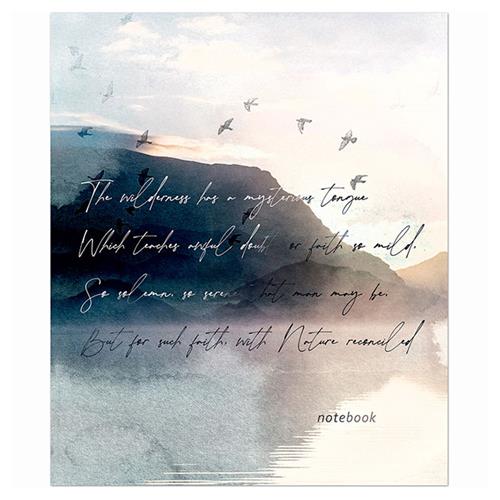 The wilderness has a mysterious tongue
Which teaches awful doubt, or faith so mild,
So solemn, so serene, that man may be,
But for such faith, with Nature reconciled
notebook